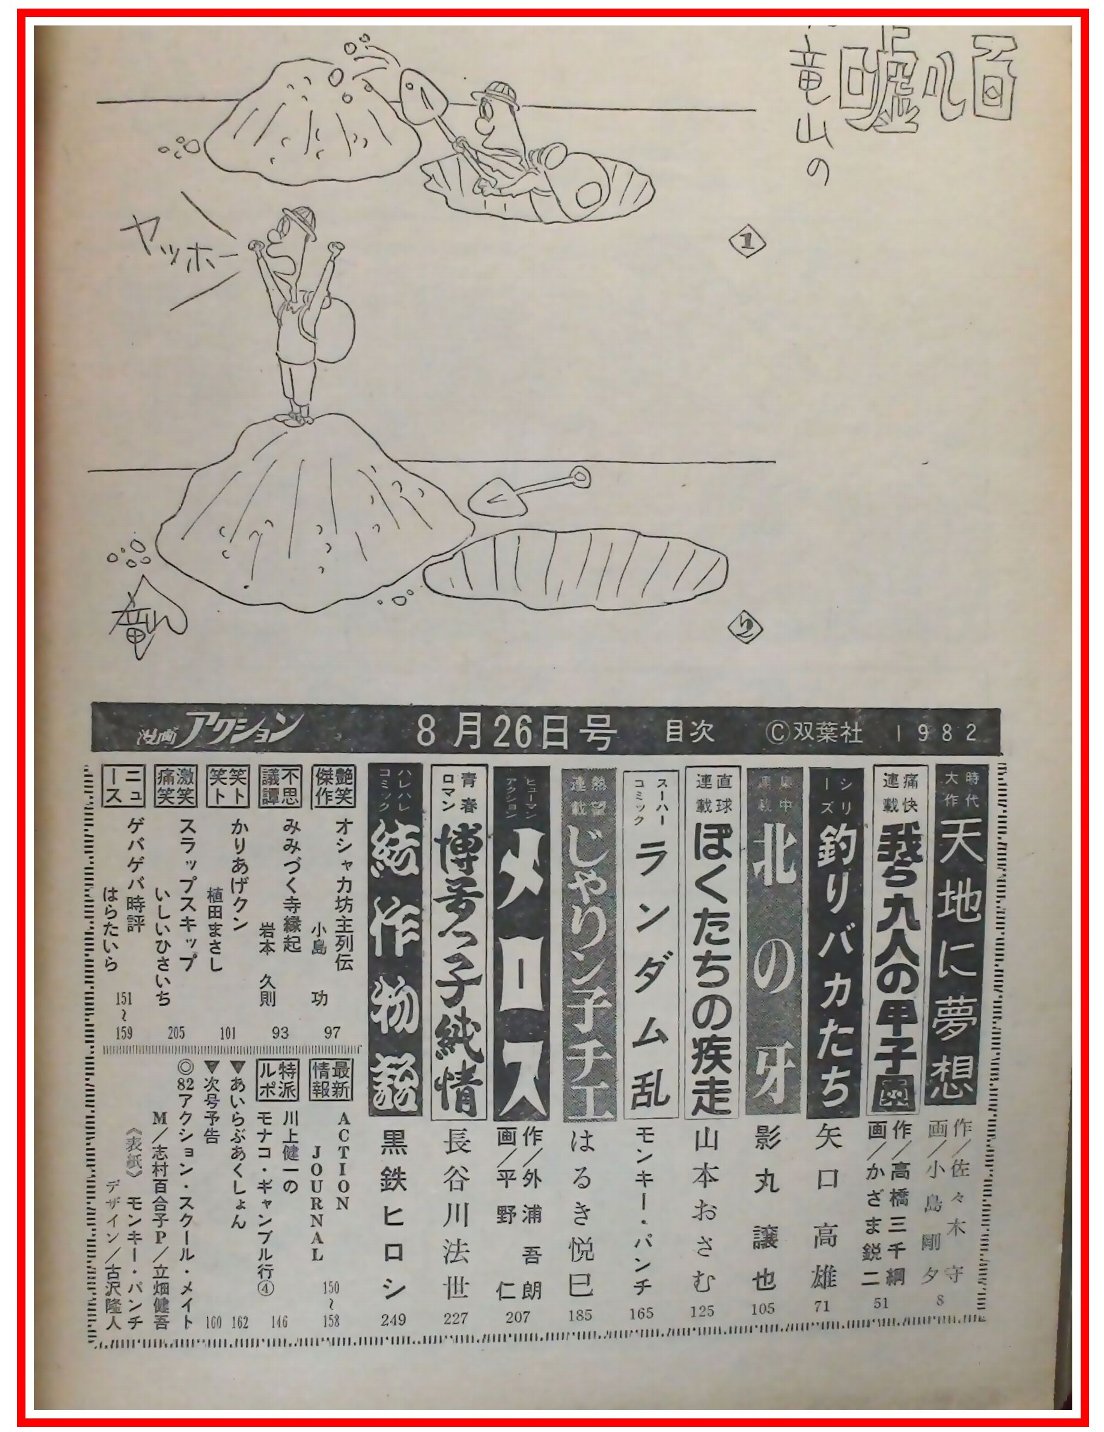 百
嘘
竜山の
1
ヤッホー
2
竜山
漫画アクション 8月26日号 目次 ©双葉社 1982
時代大作 天地に夢想 作/佐々木守 画/小島剛夕 8
痛快連載 我ら九人の甲子園 作/高橋三千綱 画/かざま鋭二 51
シリーズ 釣りバカたち 矢口高雄 71
集中連載 北の牙 影丸譲也 105
直球連載 ぼくたちの疾走 山本おさむ 125
スーパーコミック ランダム乱 モンキー・パンチ 165
熱望連載 じゃりン子チエ はるき悦巳 185
ヒューマンアクション メロス 作/外浦吾朗 画/平野仁 207
青春ロマン 博多っ子純情 長谷川法世 227
ハレハレコミック 結作物語 黒鉄ヒロシ 249
艶笑傑作 オシャカ坊主列伝 小島功 97
不思議譚 みみづく寺縁起 岩本久則 93
笑ト笑ト かりあげクン 植田まさし 101
激笑痛笑 スラップスキップ いしいひさいち 205
ニュース ゲバゲバ時評 はらたいら 151〜159
最新情報 ACTION JOURNAL 150〜158
特派ルポ 川上健一のモナコ・ギャンブル行④ 146
▼あいらぶあくしょん 162
▼次号予告 160
◎82アクション・スクール・メイト
M/志村百合子P/立畑健吾
《表紙》モンキー・パンチ
デザイン/古沢隆人